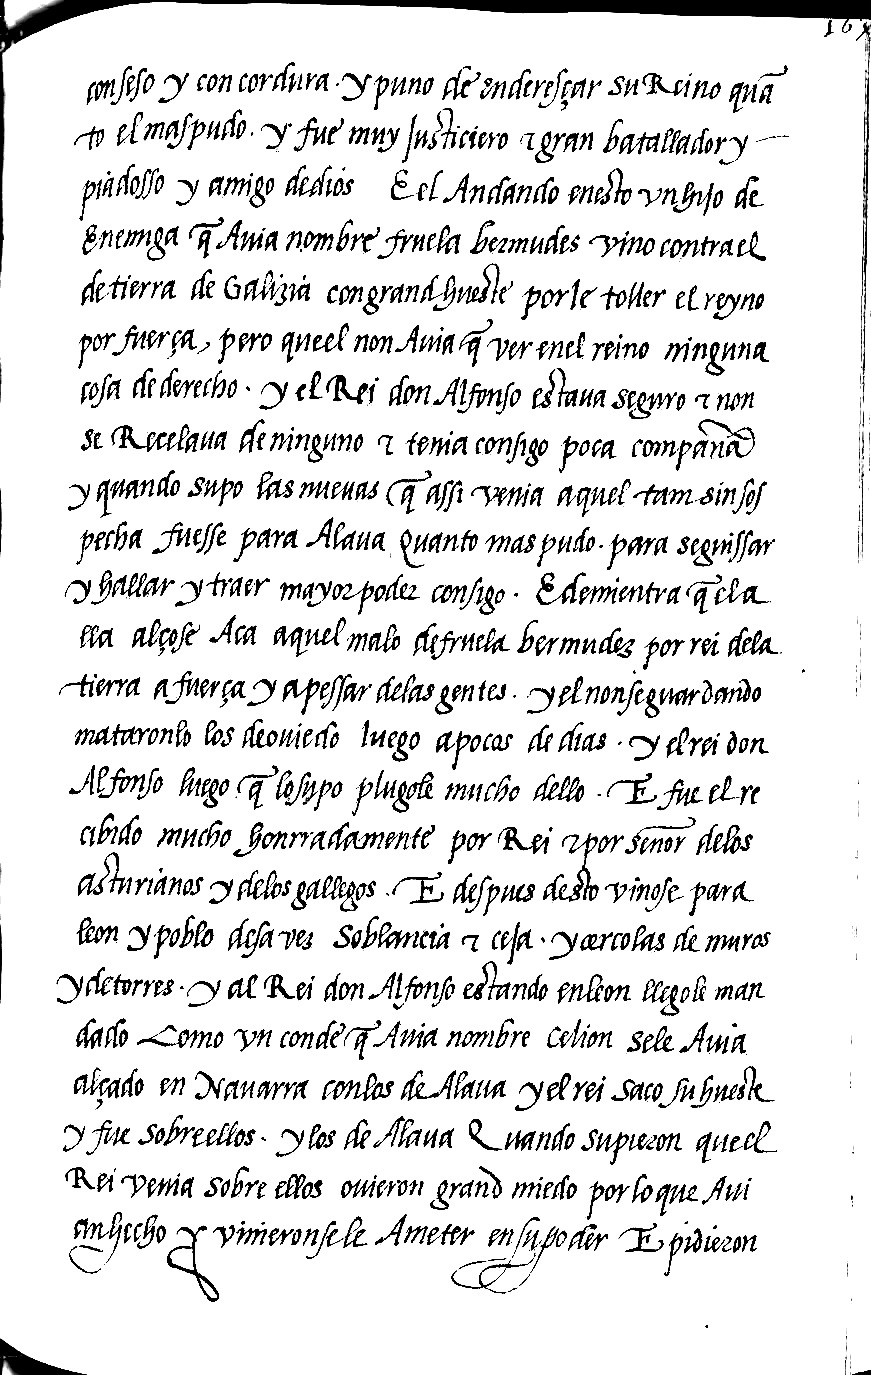 conseso y con cordura. y puno de enderesçar su Reino quã
to el mas pudo. y fue muy justiciero & gran batallador y
piadosso y amigo de dios E el Andando en esto vn hijo de
Enemiga q̃ Auia nombre fruela bermudes vino contra el
de tierra de Galizia con grand hueste por le toller el reyno
por fuerça, pero que el non Auia q̃ ver en el reino ninguna
cosa de derecho. y el Rei don Alfonso estaua seguro & non
se Recelaua de ninguno & tenia consigo poca compaña
y quando supo las nueuas q̃ assi venia aquel tam sin sos
pecha fuesse para Alaua Quanto mas pudo. para seguissar
y hallar y traer mayor poder consigo. E demientra q̃ el a
lla alçose Aca aquel malo de fruela bermudez por rei de la
tierra a fuerça y a pessar de las gentes. y el non se guardando
mataronlo los de ouiedo luego a pocos de dias. y el rei don
Alfonso luego q̃ lo supo plugole mucho dello. E fue el re
cibido mucho honrradamente por Rei & por señor de los
asturianos y de los gallegos. E despues desto vinose para
leon y poblo desa vez Soblancia & ceja. y cercolas de muros
y de torres. y al Rei don Alfonso estando en leon llegole man
dado Como vn conde q̃ Auia nombre Celion se le Auia
alçado en Nauarra con los de Alaua y el rei saco su hueste
y fue sobre ellos. y los de Alaua Quando supieron que el
Rei venia sobre ellos ouieron grand miedo por lo que Aui
an hecho y vinieronse le A meter en su poder E pidieron